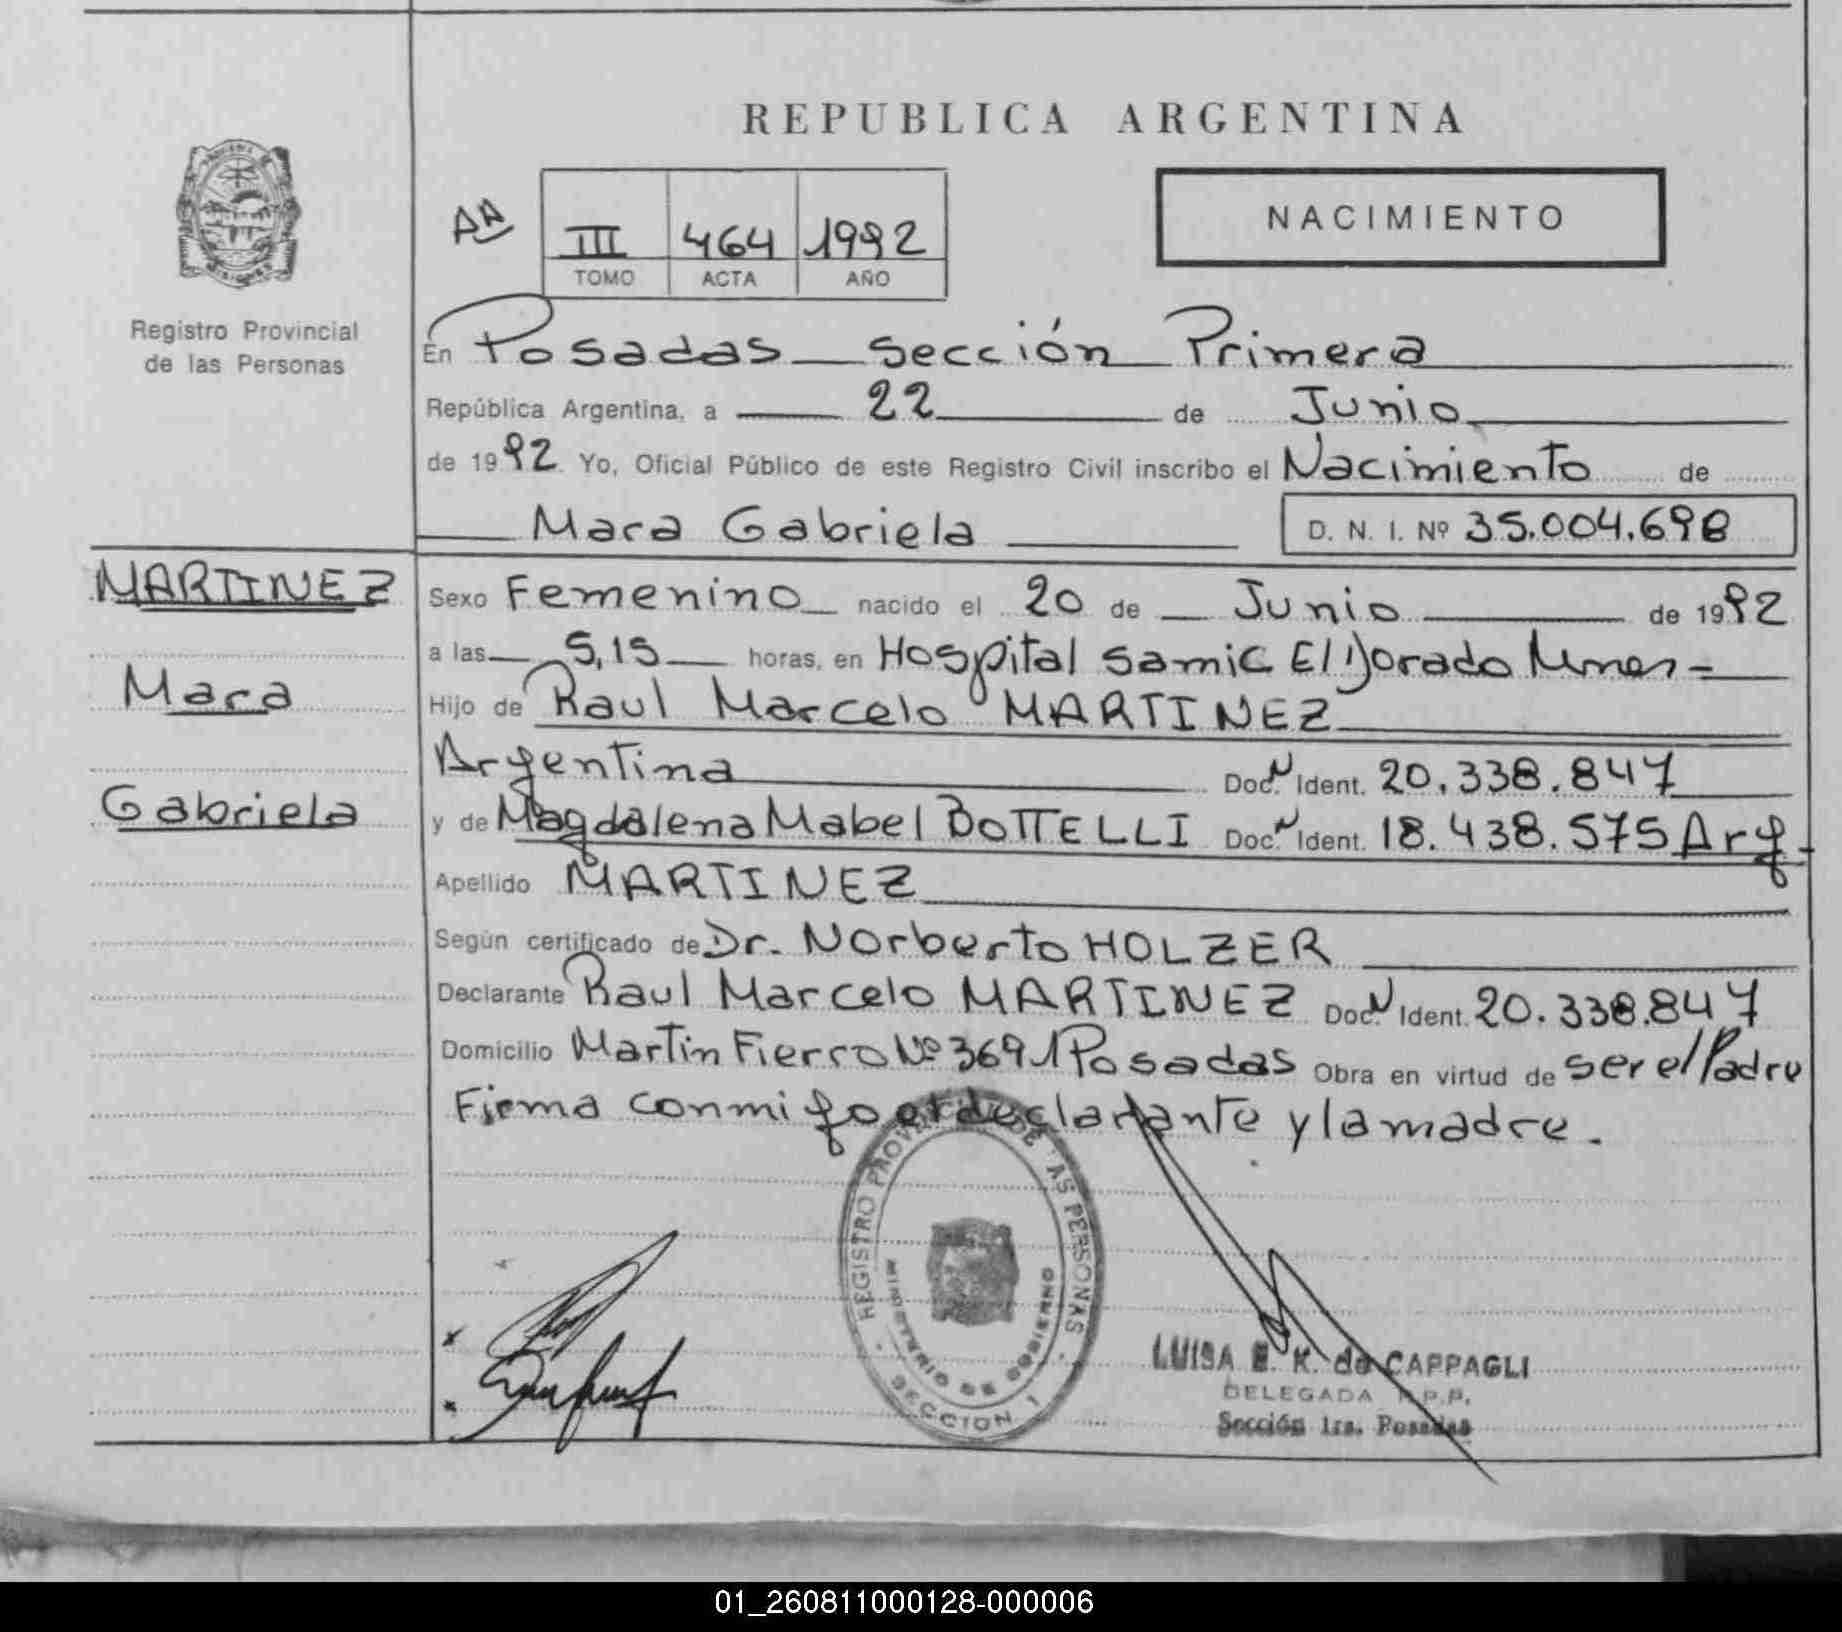 REPUBLICA ARGENTINA
NACIMIENTO
AA
III 464 1992
TOMO ACTA AÑO
Registro Provincial
de las Personas
En Posadas sección Primera
República Argentina, a 22 de Junio
de 1992 Yo, Oficial Público de este Registro Civil inscribo el Nacimiento de
Mara Gabriela D. N. I. Nº 35.004.698
MARTINEZ
Mara
Gabriela
Sexo Femenino nacido el 20 de Junio de 1992
a las 5,15 horas, en Hospital Samic El Dorado
Hijo de Raul Marcelo MARTINEZ
Argentina Doc. N Ident. 20.338.847
y de Magdalena Mabel BOTTELLI Doc. N Ident. 18.438.575 Arg-
Apellido MARTINEZ
Según certificado de Dr. Norberto HOLZER
Declarante Raul Marcelo MARTINEZ Doc. N Ident. 20.338.847
Domicilio Martin Fierro Nº 3691 Posadas Obra en virtud de ser el Padre
Firma conmigo el declarante y la madre.
REGISTRO PROVINCIAL DE LAS PERSONAS
MINISTERIO DE GOBIERNO
SECCION 1
LUISA E. K. de CAPPAGLI
DELEGADA R.P.P.
Sección 1ra. Posadas
01_260811000128-000006